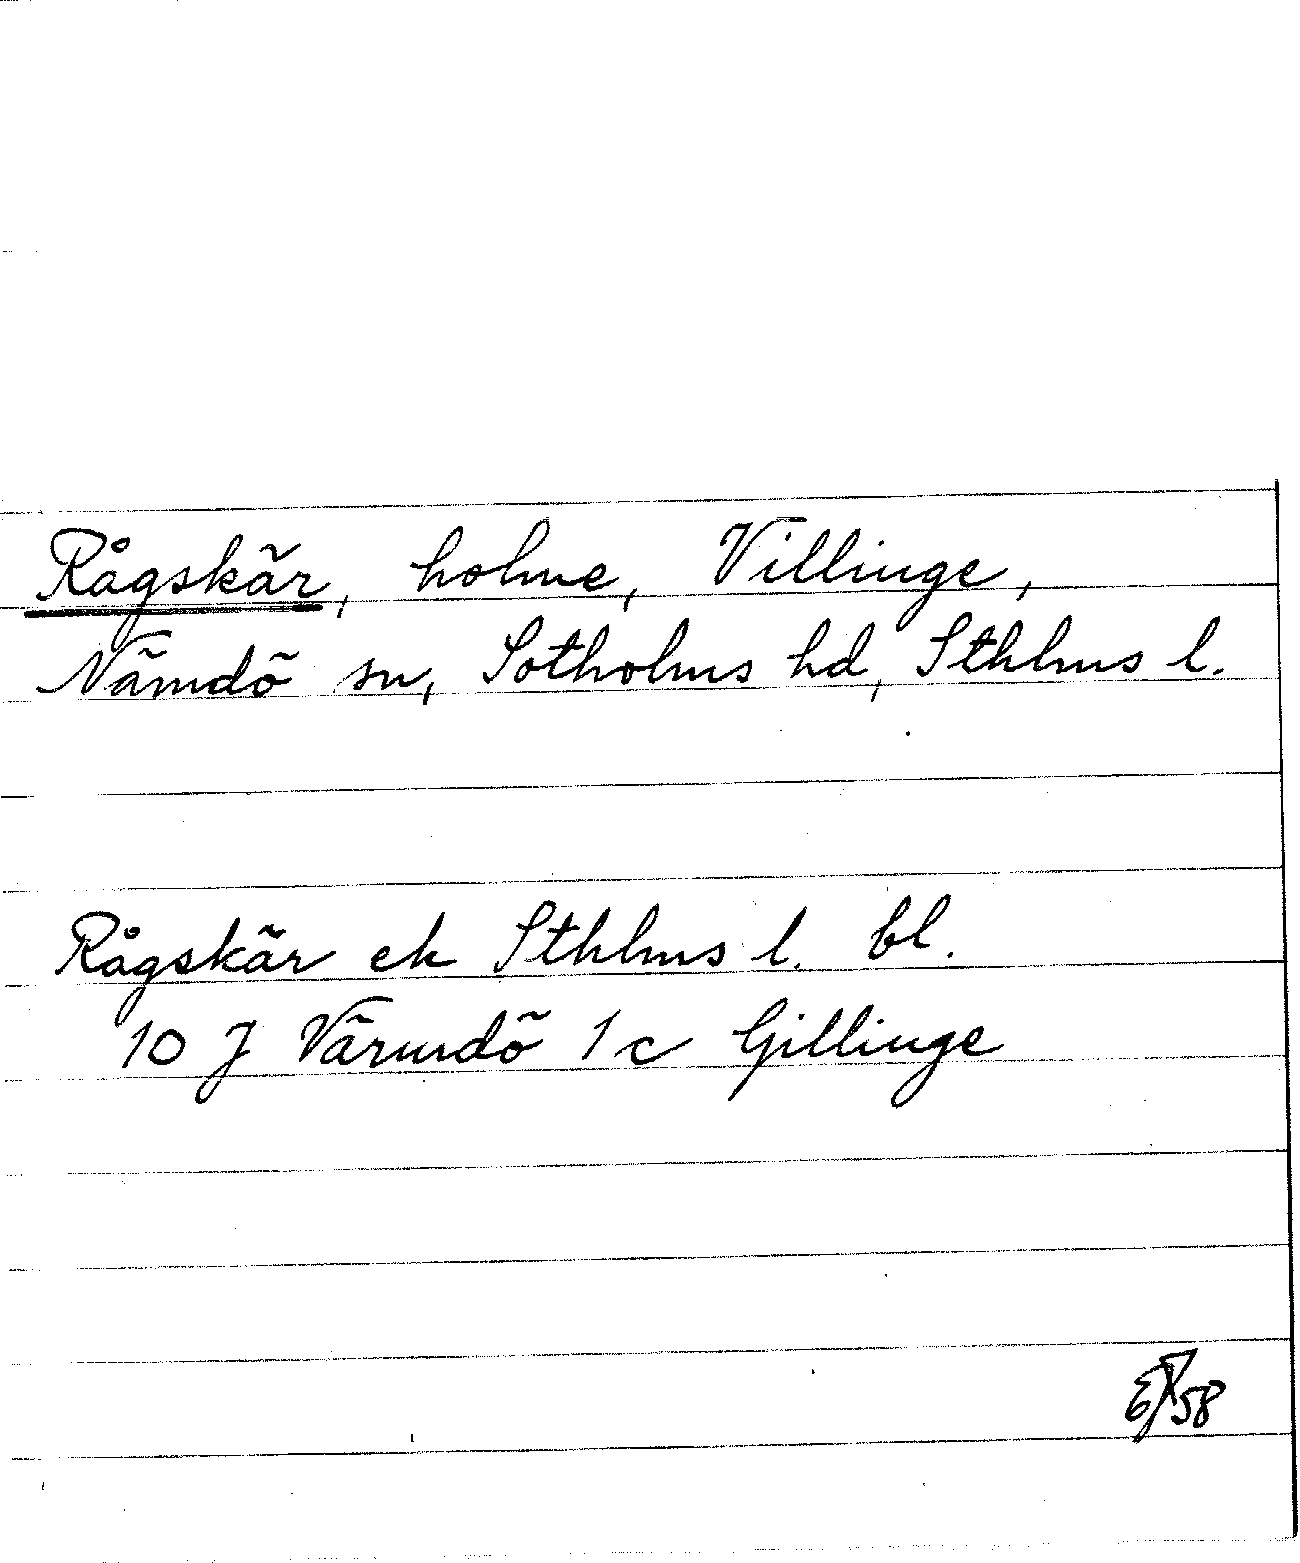 Rågskär, holme, Villinge,
Nämdö sn, Sotholms hd, Sthlms l.
Rågskär ek Sthlms l. bl.
10 J Värmdö 1 c Gillinge
58